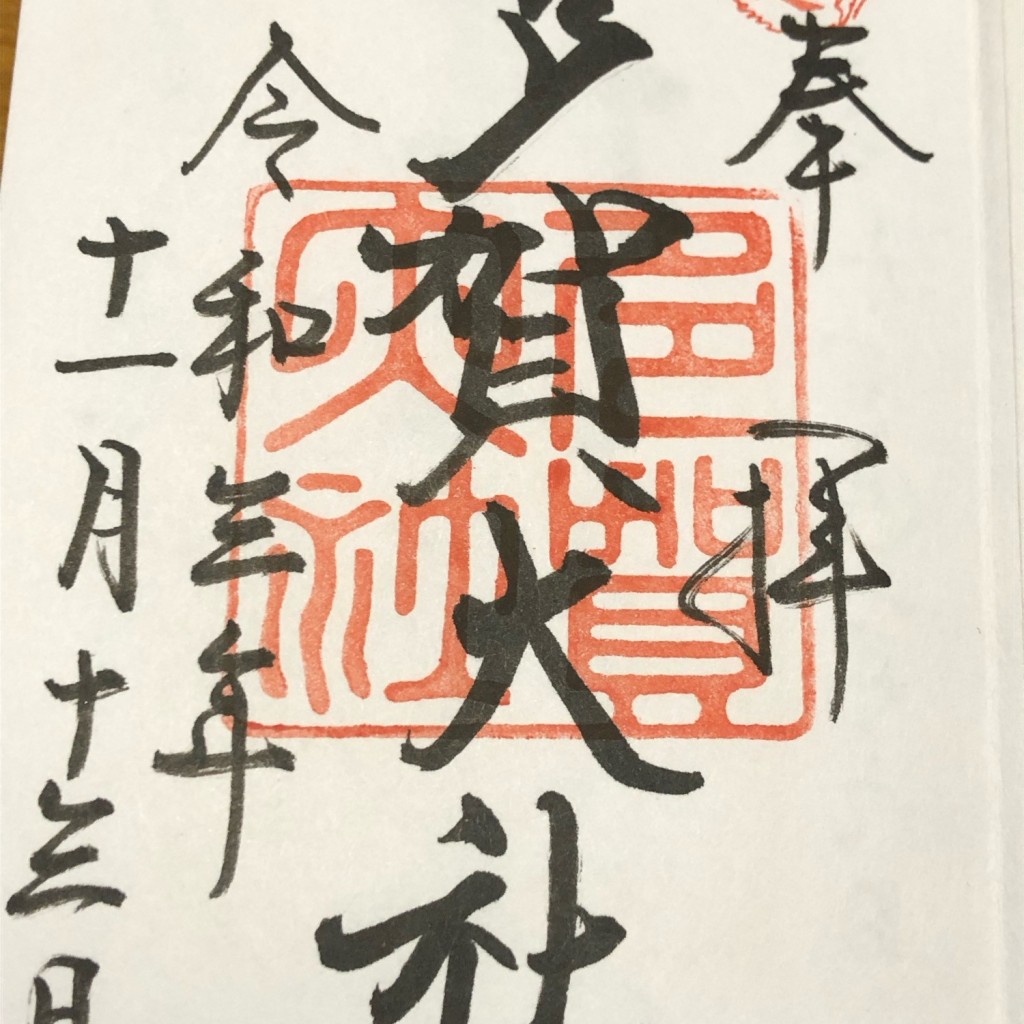 奉拝
多賀大社
令和三年
十一月十三日